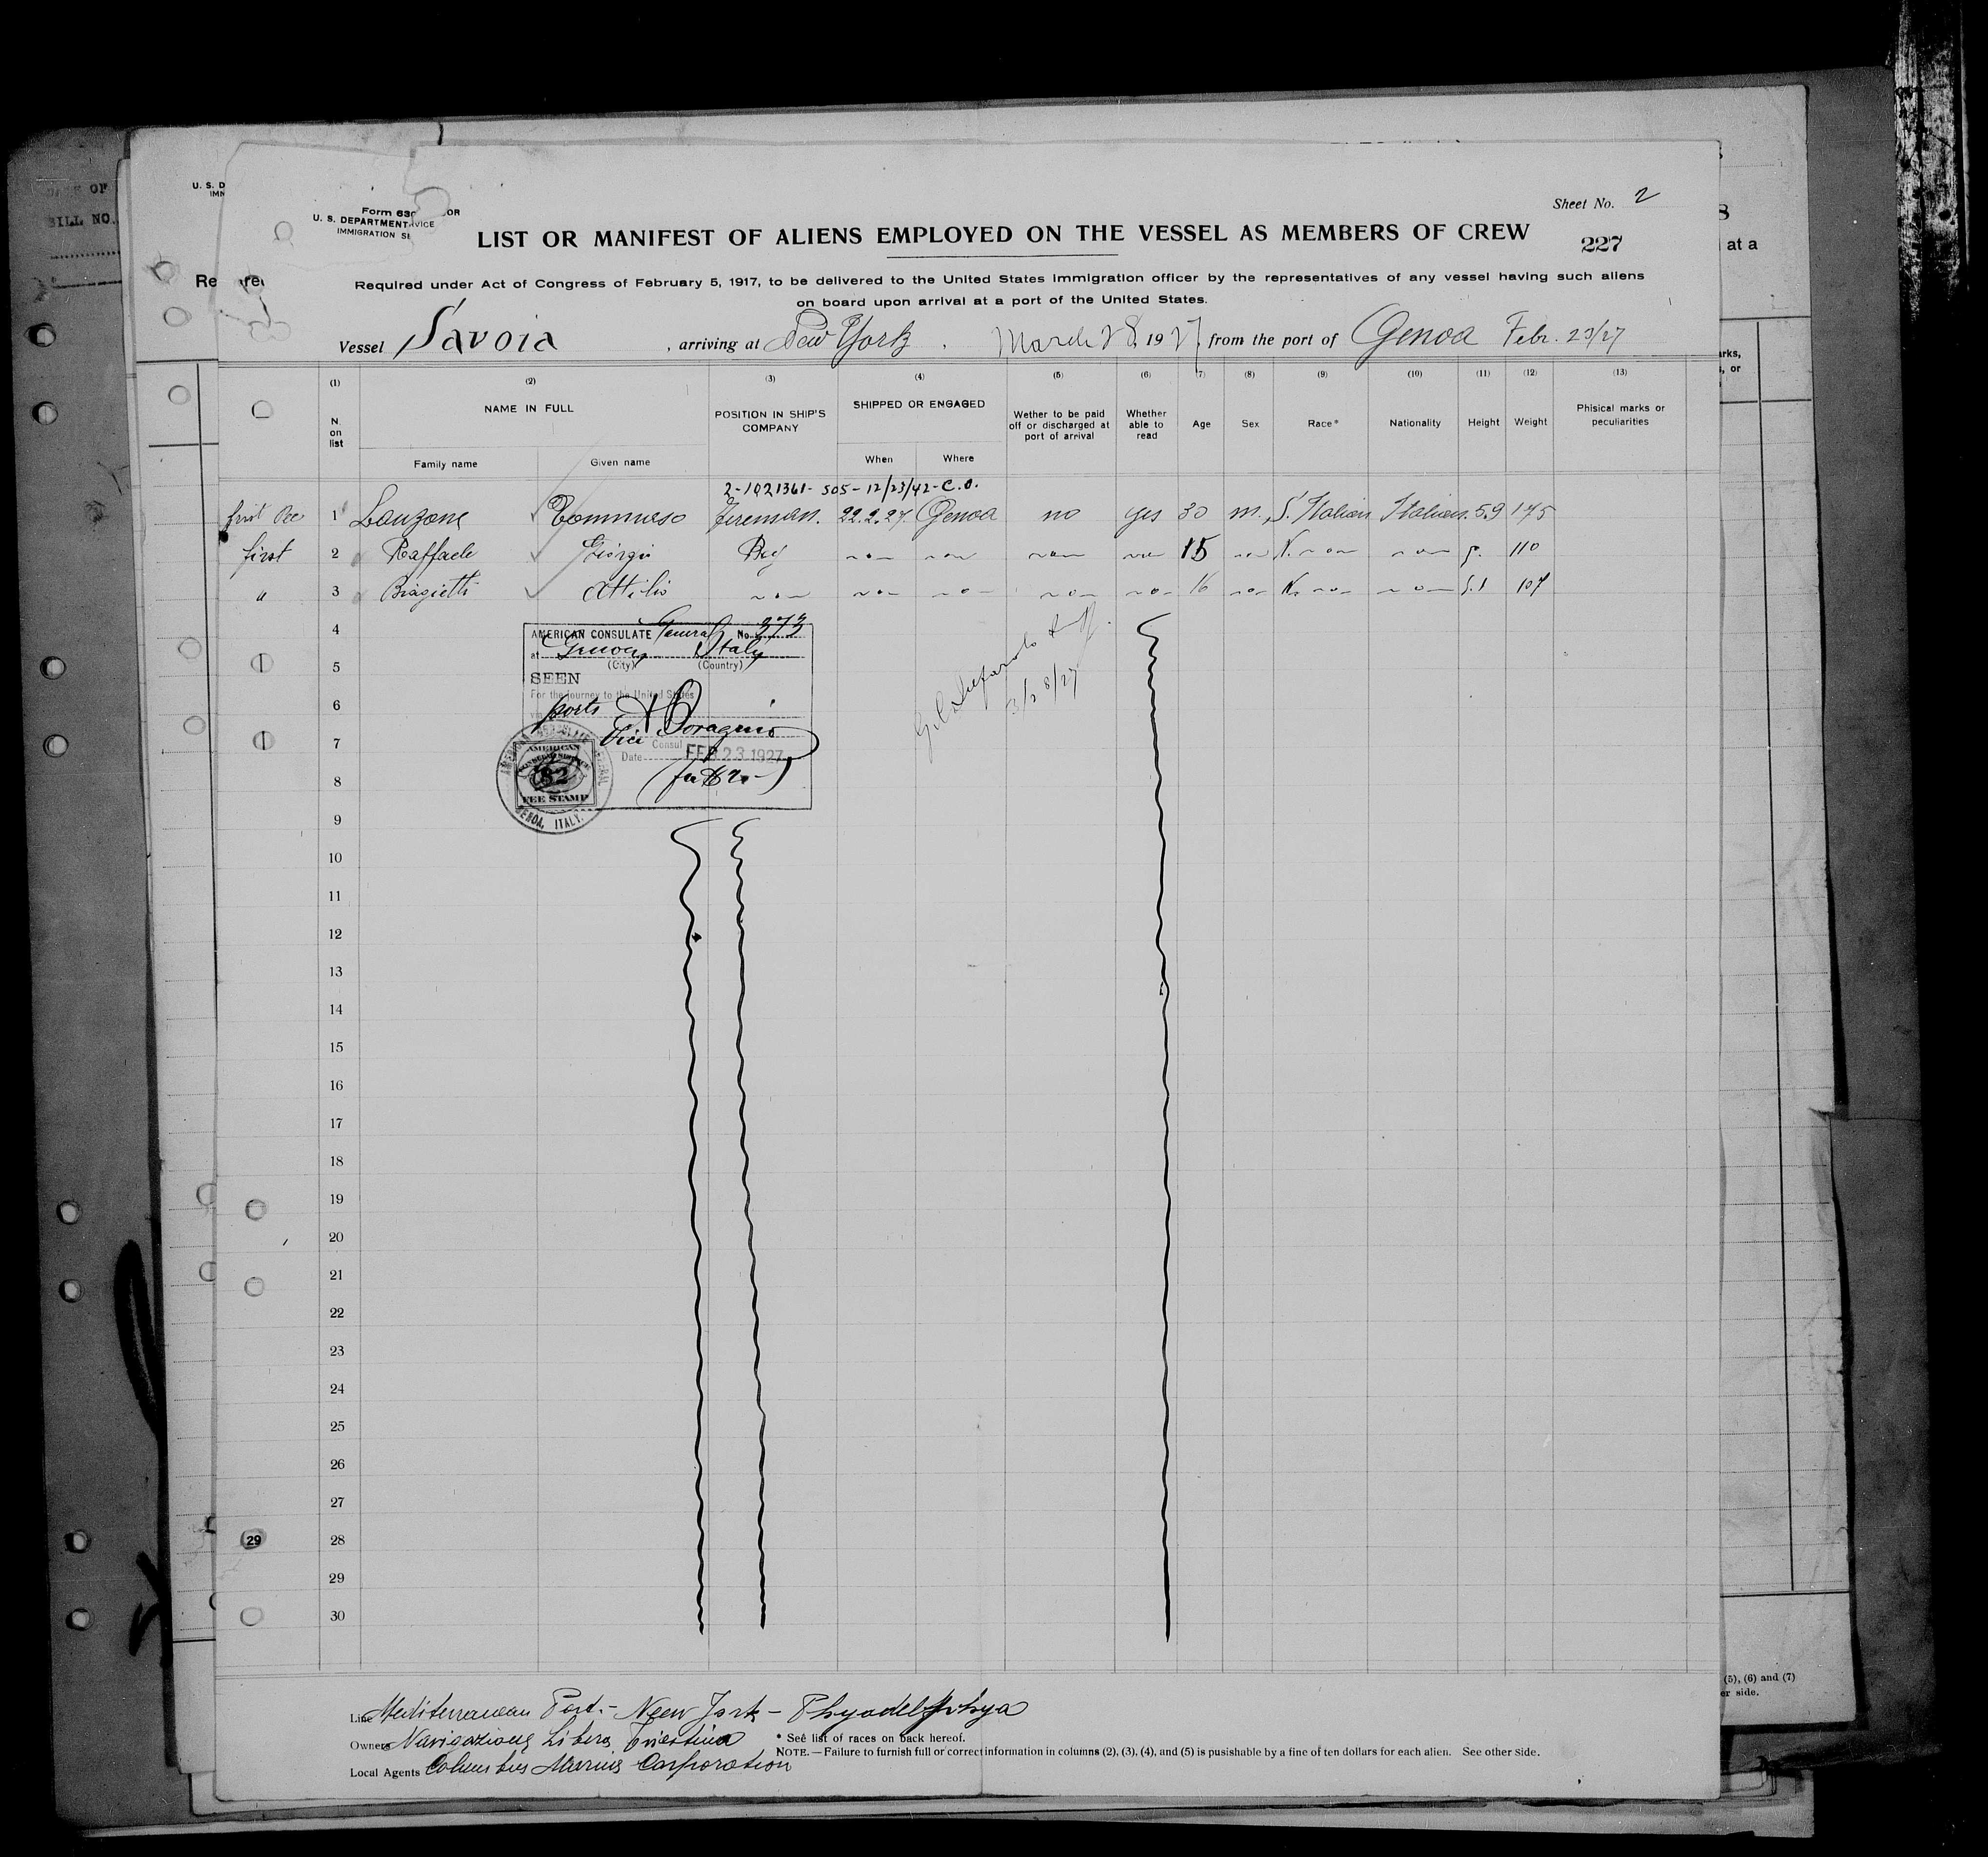 DATE OF
BILL NO.
U. S. D
IMN
Form 630
OR
U. S. DEPARTMENT
VICE
IMMIGRATION SE
Sheet No. 2
LIST OR MANIFEST OF ALIENS EMPLOYED ON THE VESSEL AS MEMBERS OF CREW
227
8
at a
Re
Required under Act of Congress of February 5, 1917, to be delivered to the United States Immigration officer by the representatives of any vessel having such aliens
on board upon arrival at a port of the United States.
Vessel Savoia , arriving at New York . March 28 1927 from the port of Genoa Febr. 23/27
arks,
s, or
(1) (2) (3) (4) (5) (6) (7) (8) (9) (10) (11) (12) (13)
N. on list
NAME IN FULL
Family name
Given name
POSITION IN SHIP'S COMPANY
SHIPPED OR ENGAGED
When
Where
Wether to be paid off or discharged at port of arrival
Whether able to read
Age
Sex
Race*
Nationality
Height
Weight
Phisical marks or peculiarities
2-1021361- 505-12/23/42-C.O.
first 1 Lanzone Tommaso Fireman. 22.2.27. Genoa no yes 30 m. S. Italian Italian. 5.9 175
first 2 Raffaele Giorgio Boy 15 N. 5. 110
" 3 Biagietti Attilio 16 N. 5.1 107
4
AMERICAN CONSULATE General No. 373
at Genoa, Italy
5
(City) (Country)
SEEN
For the journey to the United States
6
ports
3/28/27
7
Vice Consul
Date FEB 23 1927
8
AMERICAN
$2
FEE STAMP
GENOA, ITALY.
9
10
11
12
13
14
15
16
17
18
19
20
21
22
23
24
25
26
27
29 28
29
30
(5), (6) and (7)
er side.
Line Mediterranean Port. - New York - Phyadelphya
Owners Navigazione Libera Triestina
* See list of races on back hereof.
NOTE. — Failure to furnish full or correct information in columns (2), (3), (4), and (5) is pusishable by a fine of ten dollars for each alien. See other side.
Local Agents Columbus Marine Corporation